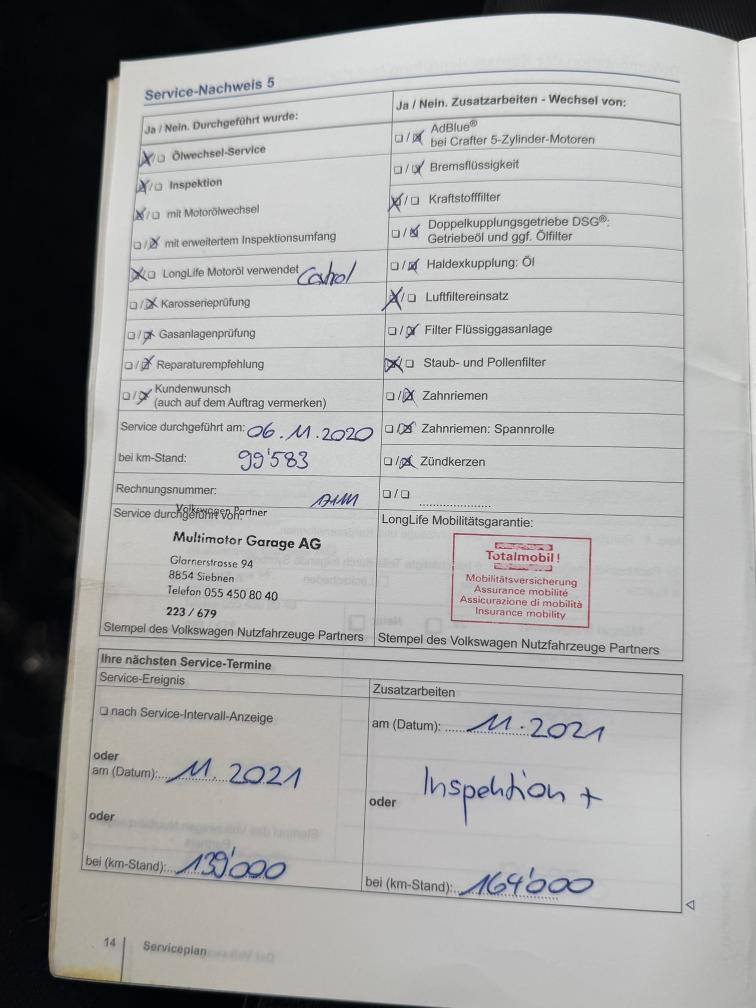 Service-Nachweis 5
Ja / Nein. Durchgeführt wurde:
☒/☐ Ölwechsel-Service
☒/☐ Inspektion
☒/☐ mit Motorölwechsel
☐/☒ mit erweitertem Inspektionsumfang
☒/☐ LongLife Motoröl verwendet Castrol
☐/☒ Karosserieprüfung
☐/☒ Gasanlagenprüfung
☐/☒ Reparaturempfehlung
☐/☒ Kundenwunsch
(auch auf dem Auftrag vermerken)
Service durchgeführt am: 06.11.2020
bei km-Stand: 99'583
Rechnungsnummer:
Service durchgeführt von:
Volkswagen Partner
Multimotor Garage AG
Glarnerstrasse 94
8854 Siebnen
Telefon 055 450 80 40
223 / 679
Stempel des Volkswagen Nutzfahrzeuge Partners
Ja / Nein. Zusatzarbeiten - Wechsel von:
☐/☒ AdBlue®
bei Crafter 5-Zylinder-Motoren
☐/☒ Bremsflüssigkeit
☒/☐ Kraftstofffilter
☐/☒ Doppelkupplungsgetriebe DSG®:
Getriebeöl und ggf. Ölfilter
☐/☒ Haldexkupplung: Öl
☒/☐ Luftfiltereinsatz
☐/☒ Filter Flüssiggasanlage
☒/☐ Staub- und Pollenfilter
☐/☒ Zahnriemen
☐/☒ Zahnriemen: Spannrolle
☐/☒ Zündkerzen
☐/☐ ......................
LongLife Mobilitätsgarantie:
Totalmobil!
Mobilitätsversicherung
Assurance mobilité
Assicurazione di mobilità
Insurance mobility
Stempel des Volkswagen Nutzfahrzeuge Partners
Ihre nächsten Service-Termine
Service-Ereignis
☐ nach Service-Intervall-Anzeige
oder
am (Datum): 11.2021
oder
bei (km-Stand): 139'000
Zusatzarbeiten
am (Datum): 11.2021
Inspektion +
oder
bei (km-Stand): 164'000
14 Serviceplan